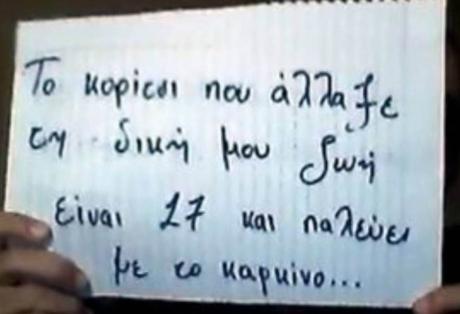 Το κορίτσι που άλλαξε
τη δική μου ζωή
είναι 17 και παλεύει
με το καρκίνο...